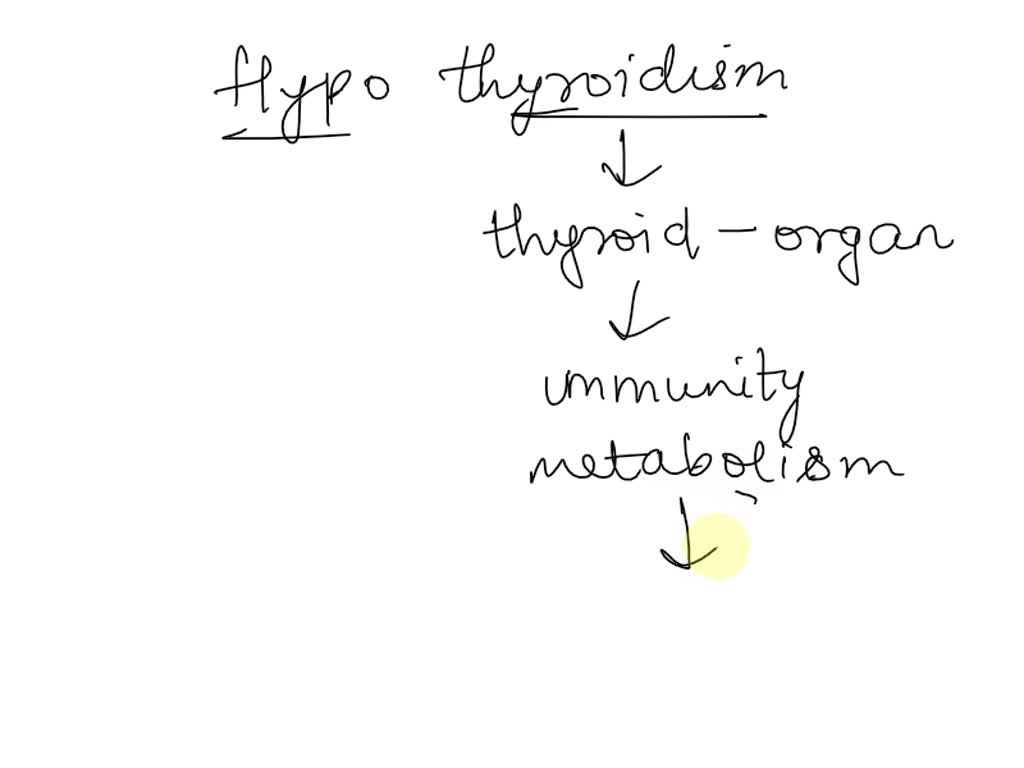 Hypo thyroidism
thyroid - organ
immunity
metabolism